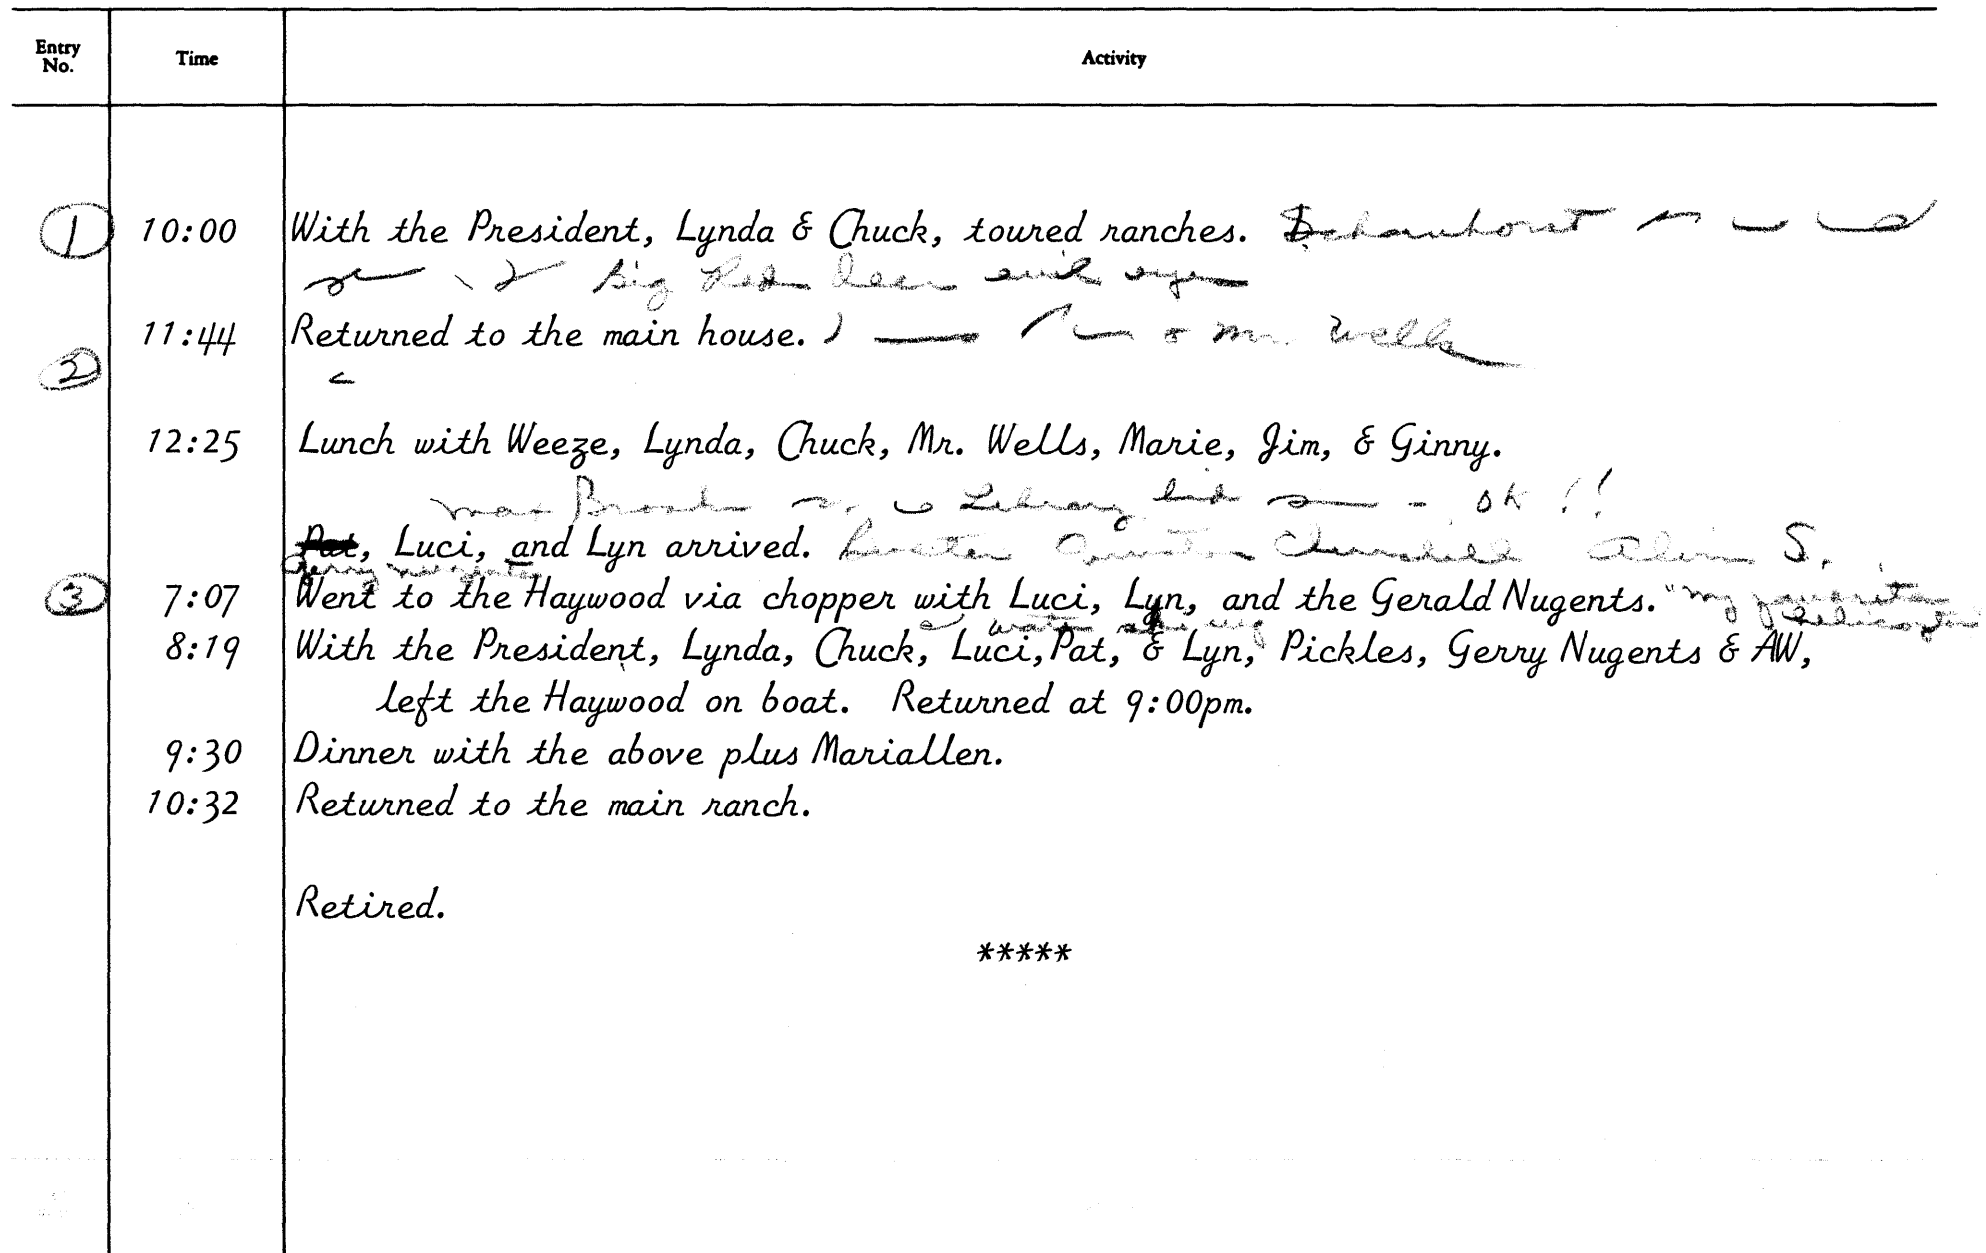 Entry No. Time Activity
1 10:00 With the President, Lynda & Chuck, toured ranches. Scharnhorst
Big Red deer evil eye
11:44 Returned to the main house. Mr. Wells
2
12:25 Lunch with Weeze, Lynda, Chuck, Mr. Wells, Marie, Jim, & Ginny.
Max Brooks Library - OK!!
Pat, Luci, and Lyn arrived. Churchill S.
Gerry Nugents
3 7:07 Went to the Haywood via chopper with Luci, Lyn, and the Gerald Nugents. "my
water skiing
8:19 With the President, Lynda, Chuck, Luci, Pat, & Lyn, Pickles, Gerry Nugents & AW,
left the Haywood on boat. Returned at 9:00pm.
9:30 Dinner with the above plus Mariallen.
10:32 Returned to the main ranch.
Retired.
*****